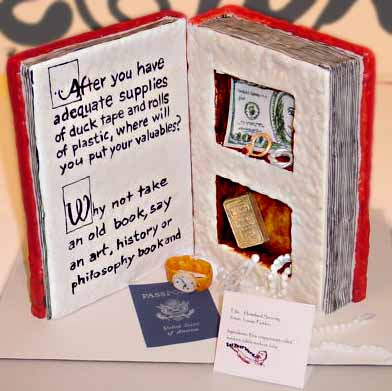 After you have
adequate supplies
of duck tape and rolls
of plastic, where will
you put your valuables?
Why not take
an old book, say
an art, history or
philosophy book and
PASSPORT
United States
of America
Title: Homeland Security